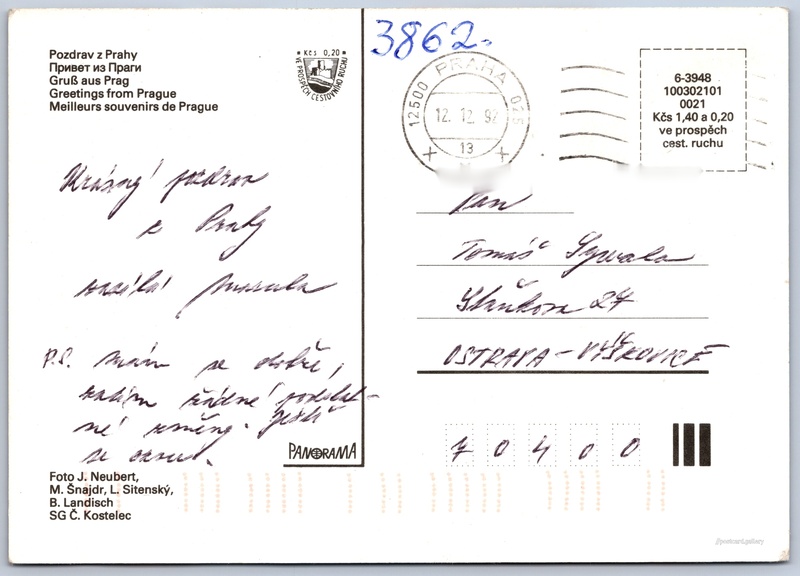 Pozdrav z Prahy
Привет из Праги
Gruß aus Prag
Greetings from Prague
Meilleurs souvenirs de Prague
Kčs 0,20
VE PROSPĚCH CESTOVNÍHO RUCHU
3862
12500 PRAHA 025
12.12.92
13
6-3948
100302101
0021
Kčs 1,40 a 0,20
ve prospěch
cest. ruchu
Krásný pozdrav
z Prahy
zasílá
P.S. mám se dobře,
řádné podstat-
né změny. Ještě
se
Pan
Tomáš
27
OSTRAVA - VÝŠKOVICE
70400
PANORAMA
Foto J. Neubert,
M. Šnajdr, L. Sitenský,
B. Landisch
SG Č. Kostelec
//postcard.gallery